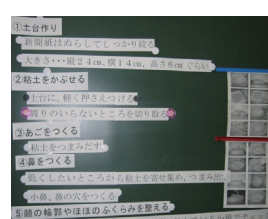 ①土台作り
新聞紙はぬらしてしっかり絞る
大きさ・・・縦24cm、横14cm、高さ6cmぐらい
②粘土をかぶせる
土台に、軽く押さえつける
周りのいらないところを切り取る
③あごをつくる
粘土をつまみだす
④鼻をつくる
低くしたいところから粘土を寄せ集め、つまみ出
小鼻、鼻の穴をつくる
⑤顔の輪郭やほほのふくらみを整える